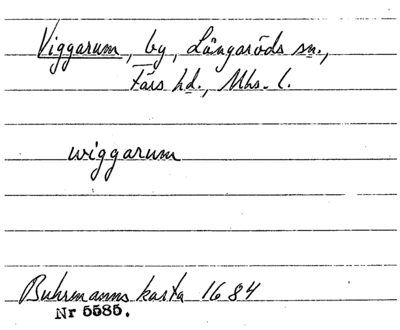 Viggarum, by, Långaröds sn.,
Färs hd., Mhs. l.
wiggarum
Buhrmanns karta 1684
Nr 5585.